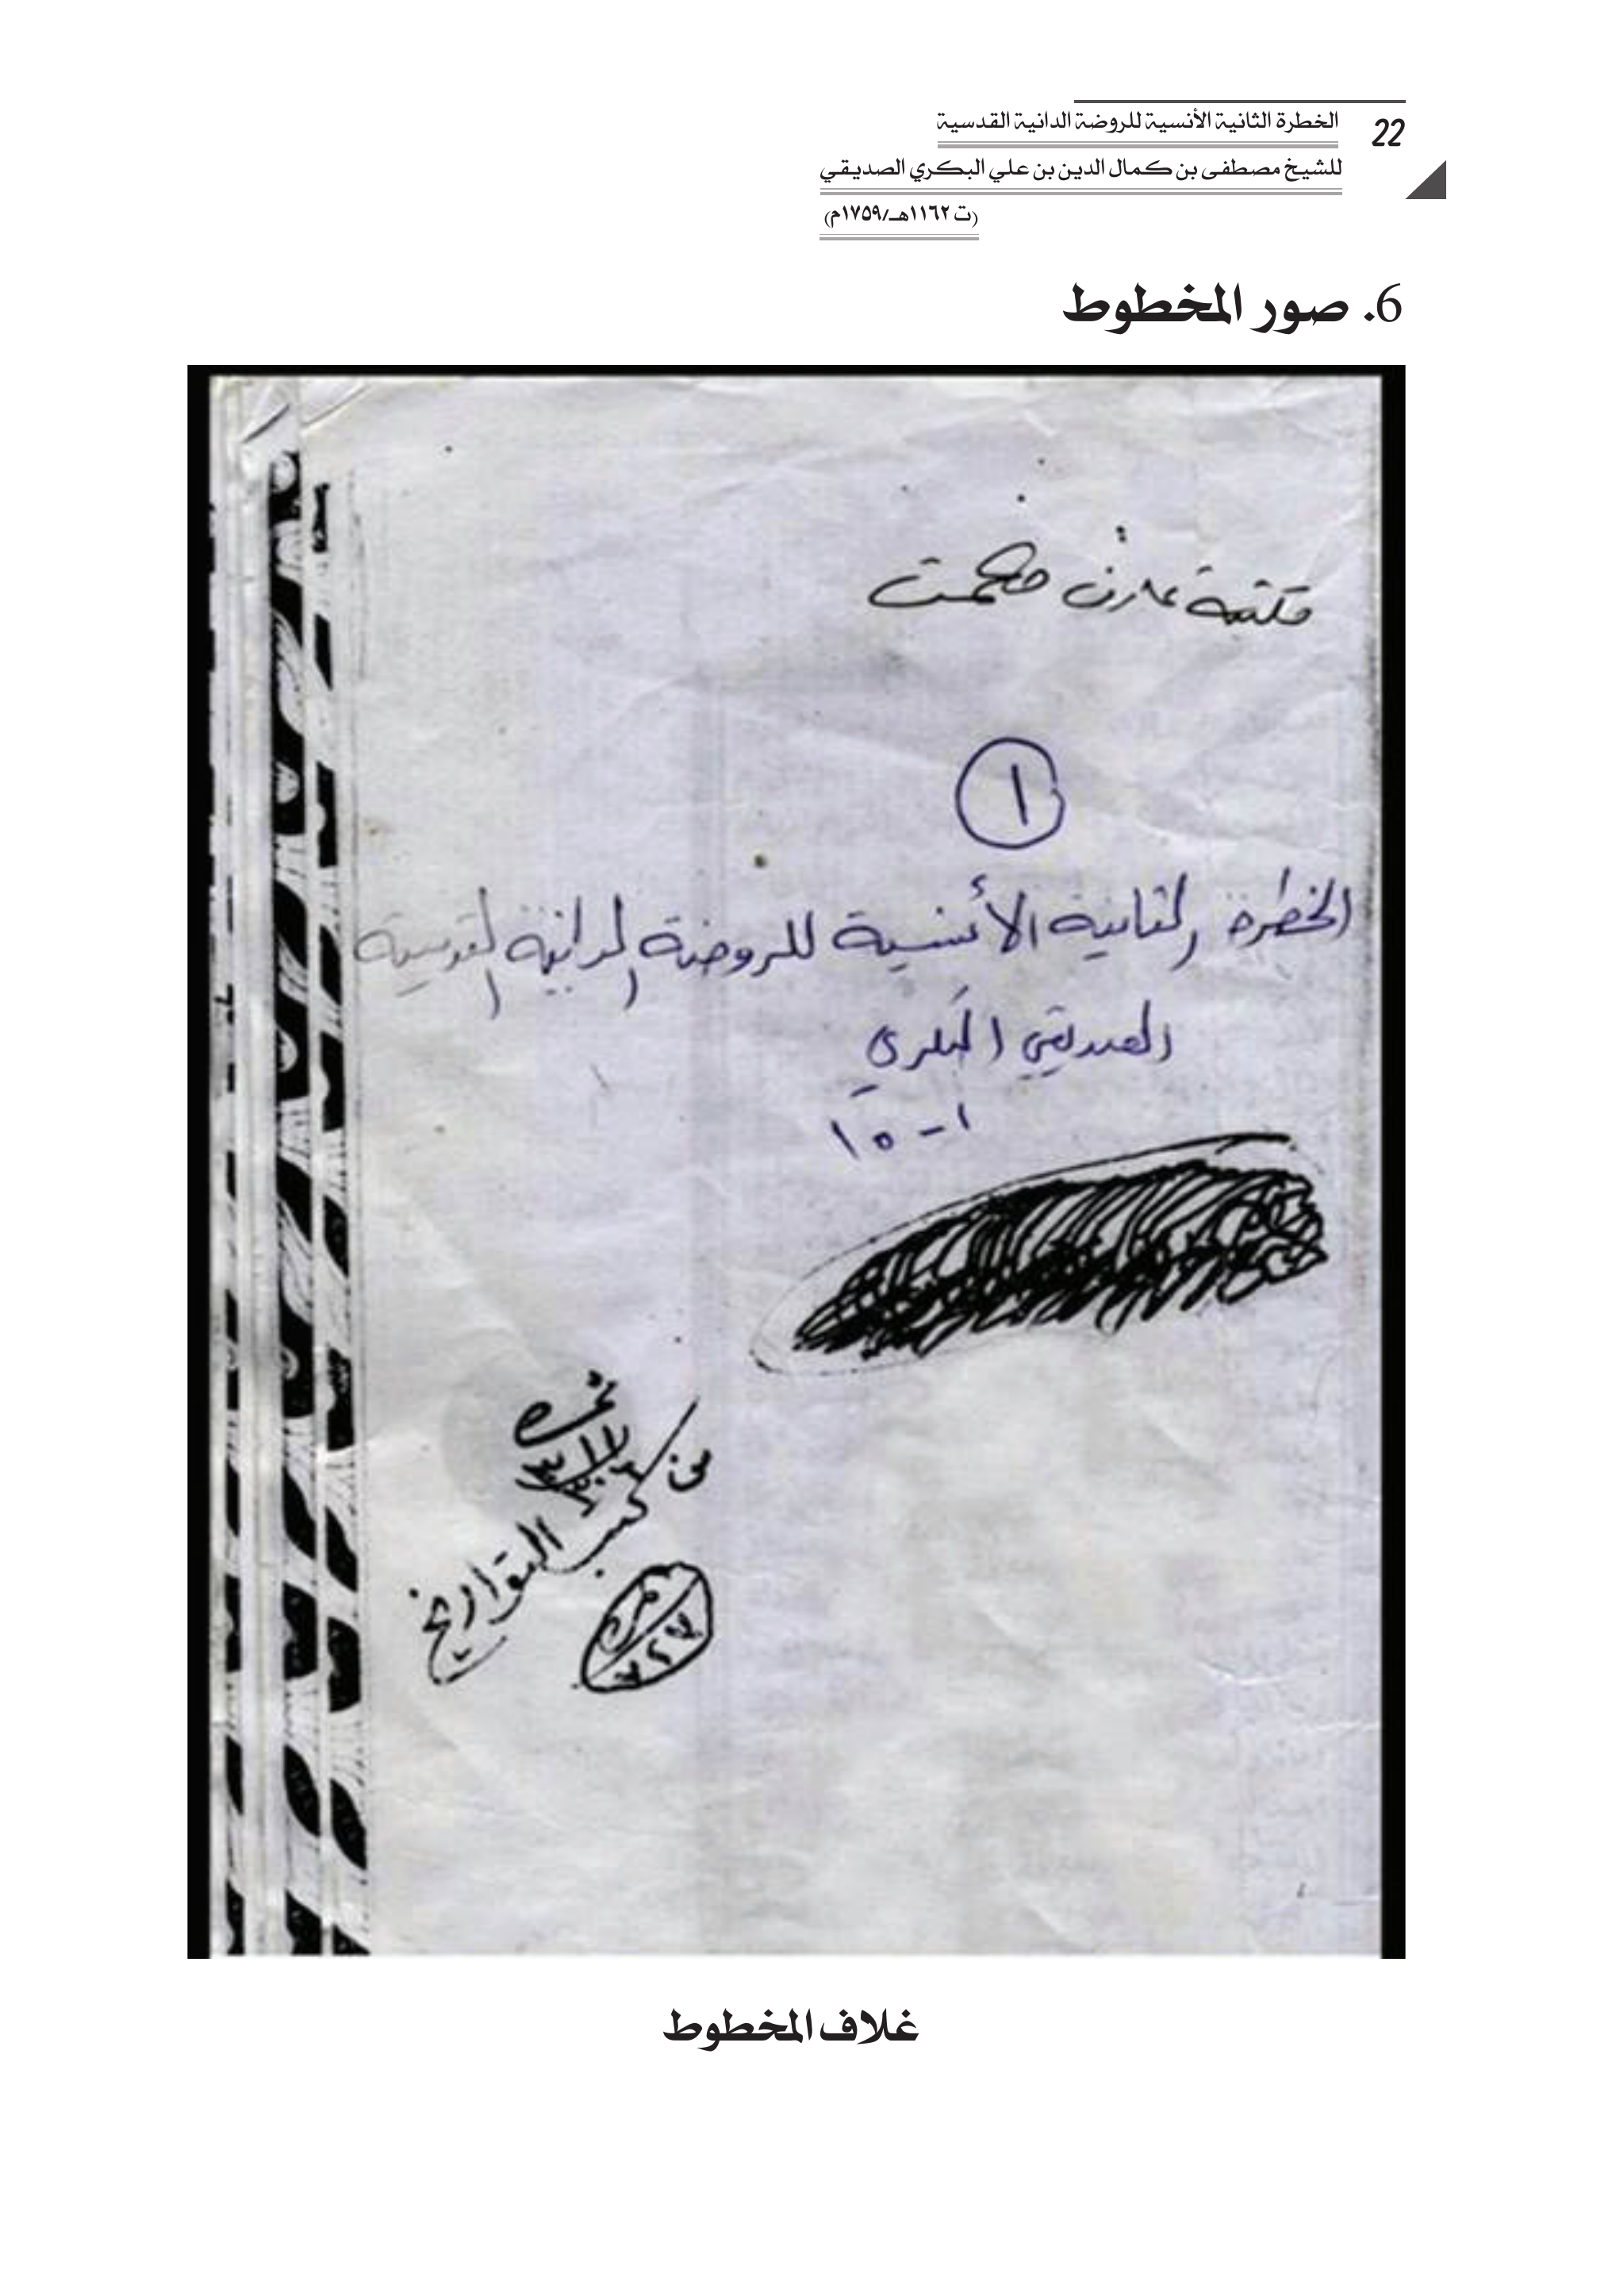 22
الخطرة الثانية الأنسية للروضة الدانية القدسية
للشيخ مصطفى بن كمال الدين بن علي البكري الصديقي
(ت ١١٦٢هـ/١٧٥٩م)
6. صور المخطوط
مكتبة عارف حكمت
١
الخطرة الثانية الأنسية للروضة الدانية القدسية
الصديقي البكري
١ - ١٥
نمره
من كتب التواريخ
نمره
٧٢٧
غلاف المخطوط